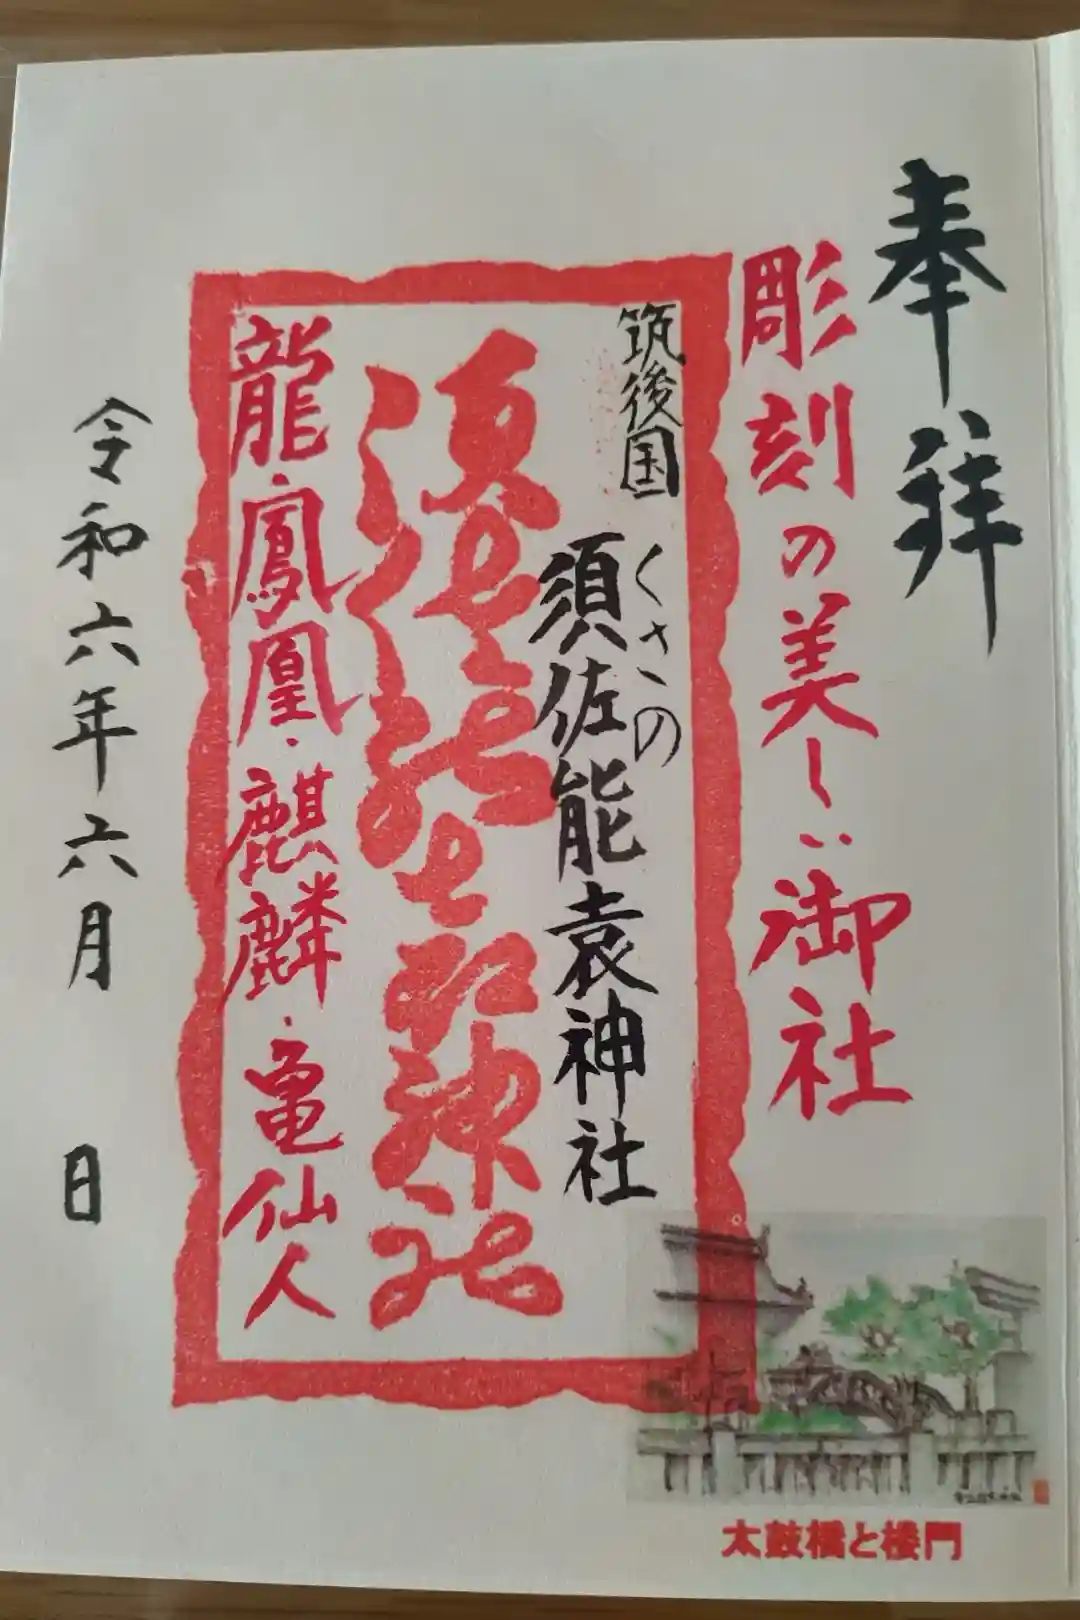 奉拝
彫刻の美しい御社
筑後国
くさの
須佐能袁神社
龍・鳳凰・麒麟・亀仙人
令和六年六月 日
太鼓橋と楼門